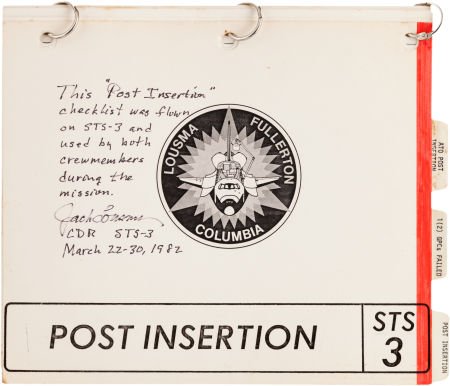 This "Post Insertion"
checklist was flown
on STS-3 and
used by both
crewmembers
during the
mission.
Jack Lousma
CDR STS-3
March 22-30, 1982
LOUSMA FULLERTON
COLUMBIA
ATO POST
INSERTION
1(2) GPCs FAILED
POST INSERTION
POST INSERTION
STS
3